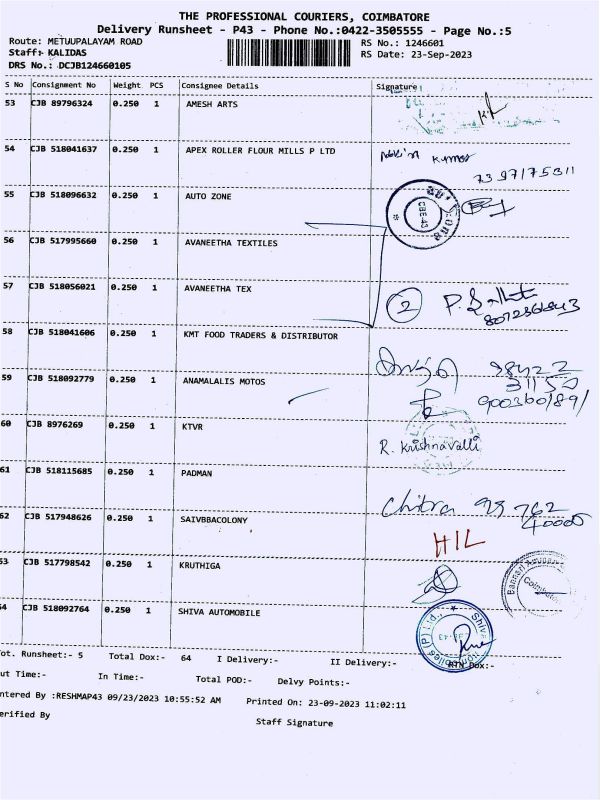 THE PROFESSIONAL COURIERS, COIMBATORE
Delivery Runsheet - P43 - Phone No.:0422-3505555 - Page No.:5
Route: METUUPALAYAM ROAD RS No.: 1246601
Staff:- KALIDAS RS Date: 23-Sep-2023
DRS No.: DCJB124660105
S No Consignment No Weight PCS Consignee Details Signature
53 CJB 89796324 0.250 1 AMESH ARTS
54 CJB 518041637 0.250 1 APEX ROLLER FLOUR MILLS P LTD Kumar
7397175311
55 CJB 518096632 0.250 1 AUTO ZONE CBE-43
56 CJB 517995660 0.250 1 AVANEETHA TEXTILES
57 CJB 518056021 0.250 1 AVANEETHA TEX 2 P.
58 CJB 518041606 0.250 1 KMT FOOD TRADERS & DISTRIBUTOR
98422
59 CJB 518092779 0.250 1 ANAMALALIS MOTOS
60 CJB 8976269 0.250 1 KTVR R. Krishnavalli
61 CJB 518115685 0.250 1 PADMAN Chitra
62 CJB 517948626 0.250 1 SAIVBBACOLONY HIL
53 CJB 517798542 0.250 1 KRUTHIGA Bannari Coimbatore
54 CJB 518092764 0.250 1 SHIVA AUTOMOBILE Shiva Automobiles (P) Ltd.,
ot. Runsheet:- 5 Total Dox:- 64 I Delivery:- II Delivery:- RTN Dox:-
ut Time:- In Time:- Total POD:- Delvy Points:-
ntered By :RESHMAP43 09/23/2023 10:55:52 AM Printed On: 23-09-2023 11:02:11
erified By Staff Signature